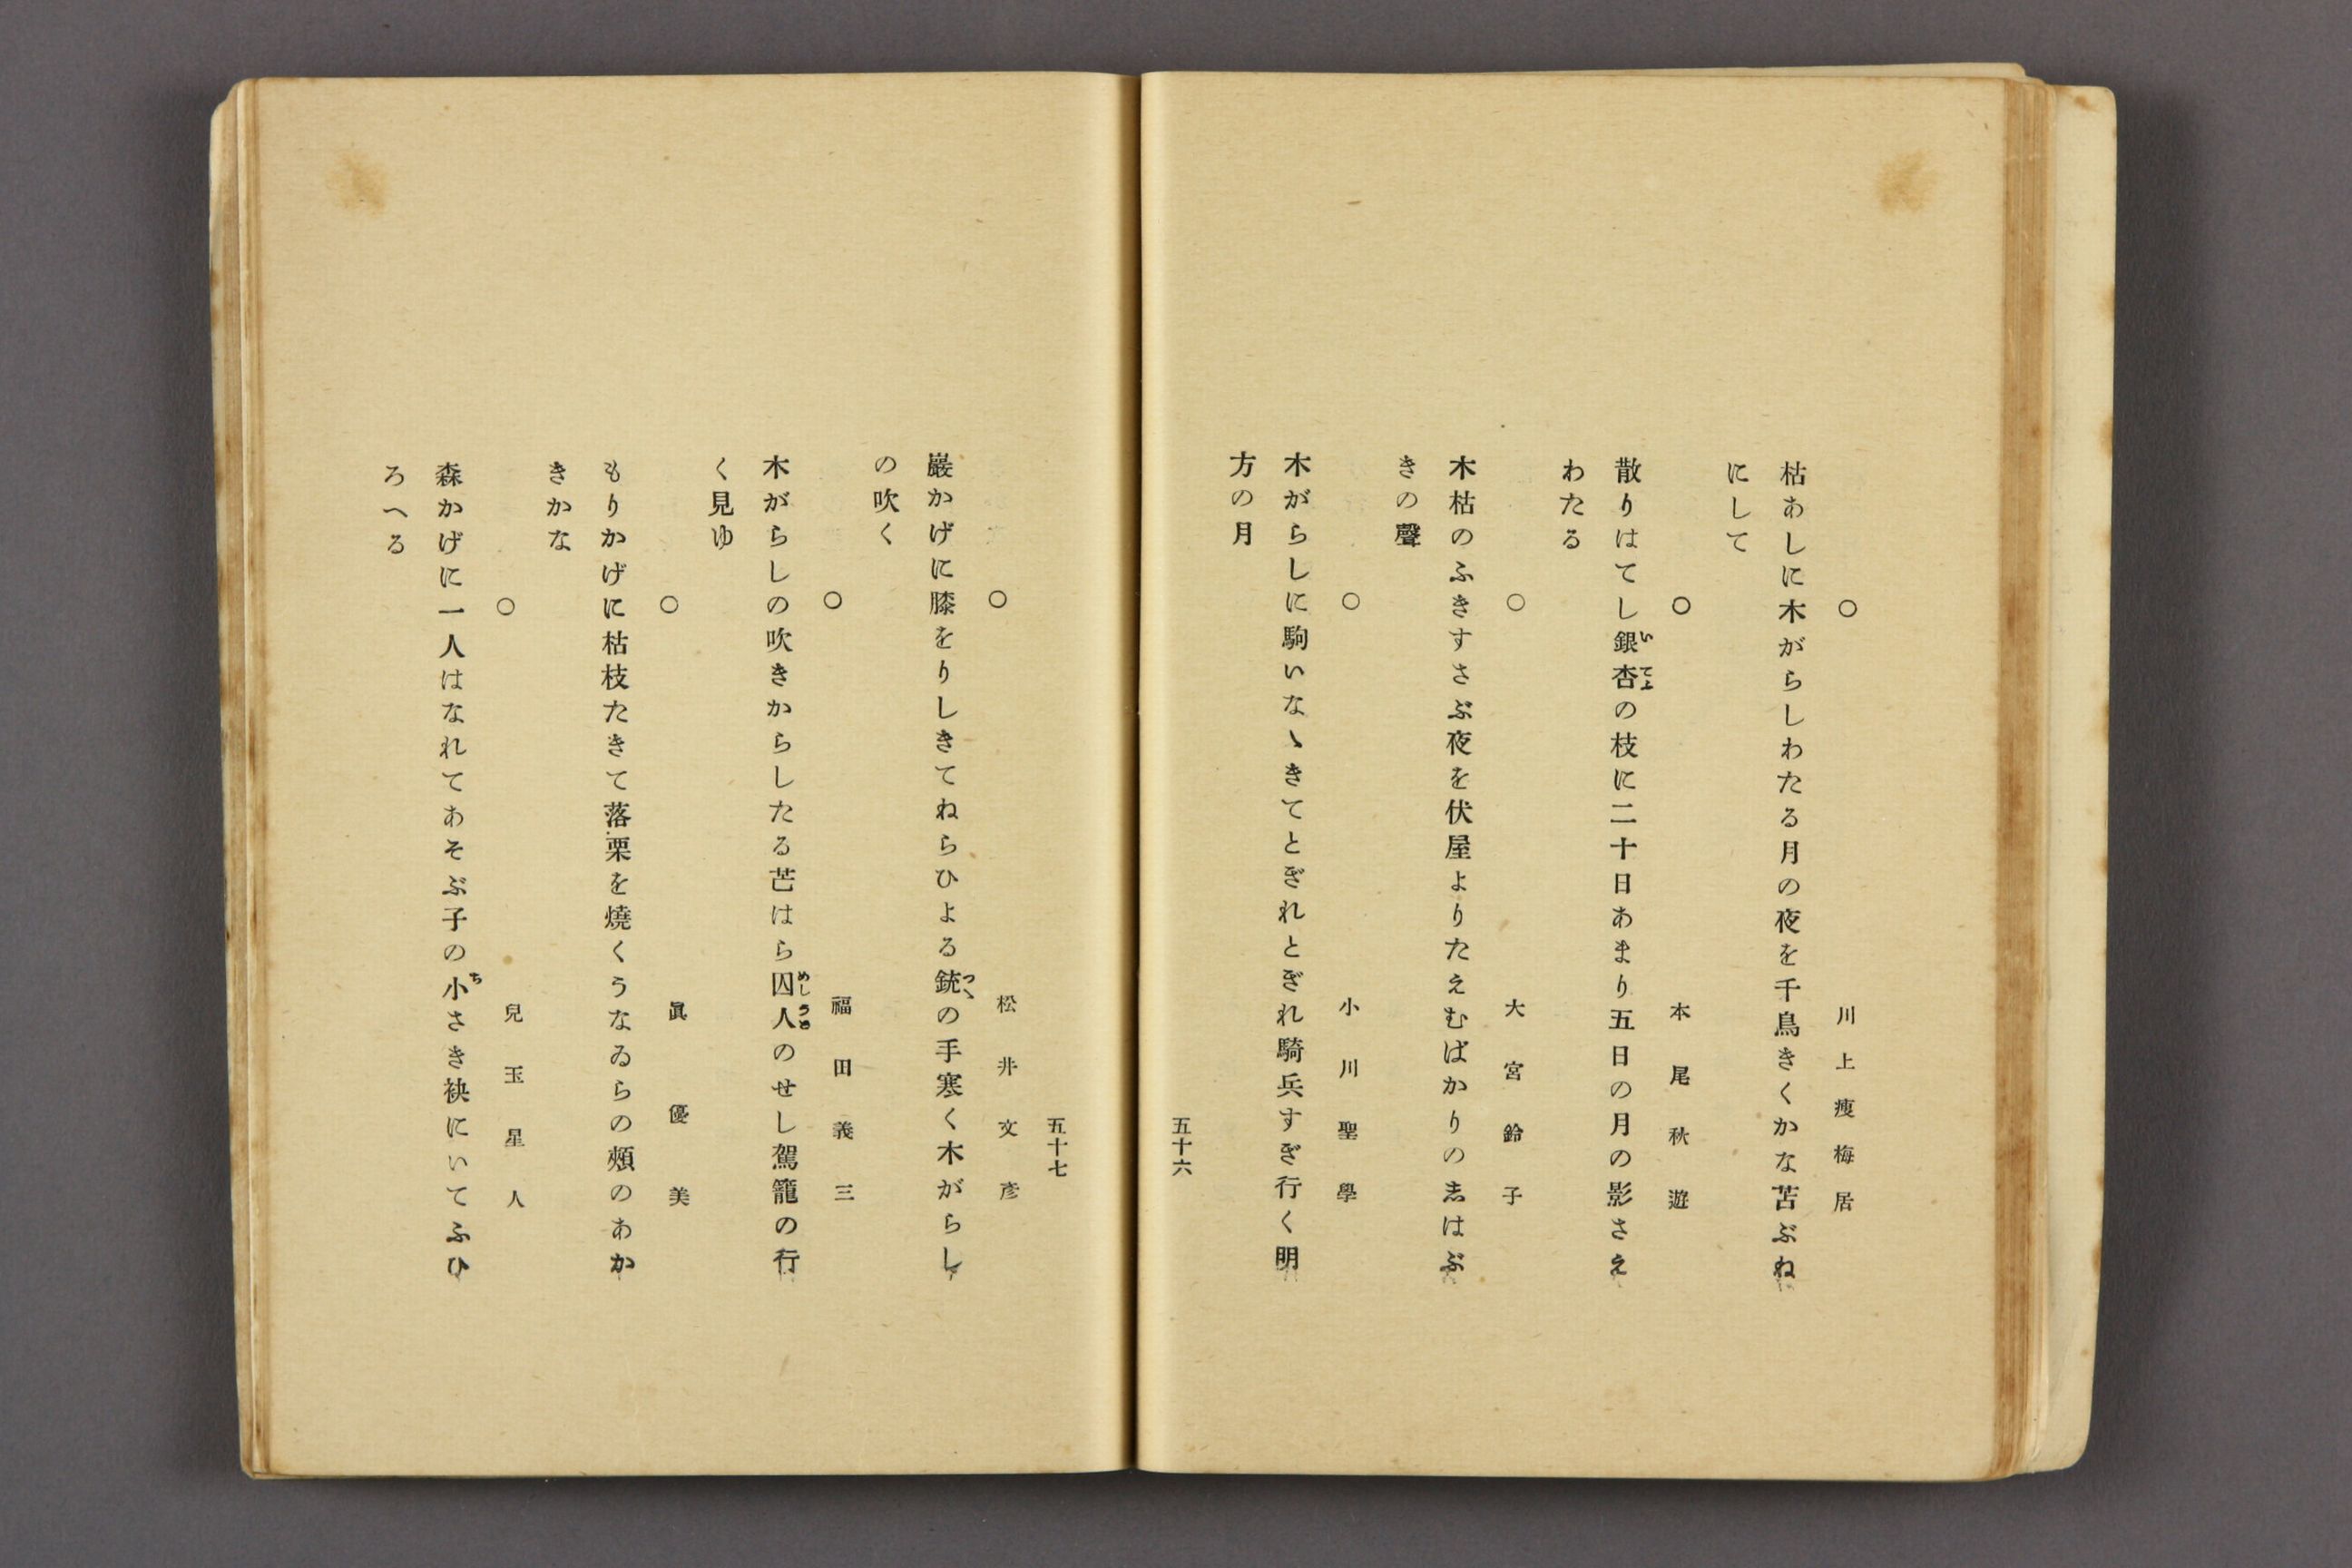 ○　川上痩梅居
枯あしに木がらしわたる月の夜を千鳥きくかな苫ぶね
にして
○　本尾秋遊
散りはてし銀杏の枝に二十日あまり五日の月の影さえ
いてふ
わたる
○　大宮鈴子
木枯のふきすさぶ夜を伏屋よりたえむばかりの志はぶ
きの聲
○　小川聖學
木がらしに駒いなゝきてとぎれとぎれ騎兵すぎ行く明
方の月
五十六
五十七
○　松井文彦
巖かげに膝をりしきてねらひよる銃の手寒く木がらし
つゝ
の吹く
○　福田義三
木がらしの吹きからしたる芒はら囚人のせし駕籠の行
めしうど
く見ゆ
○　眞優美
もりかげに枯枝たきて落栗を燒くうなゐらの頰のあか
きかな
○　兒玉星人
森かげに一人はなれてあそぶ子の小さき袂にいてふひ
ち
ろへる